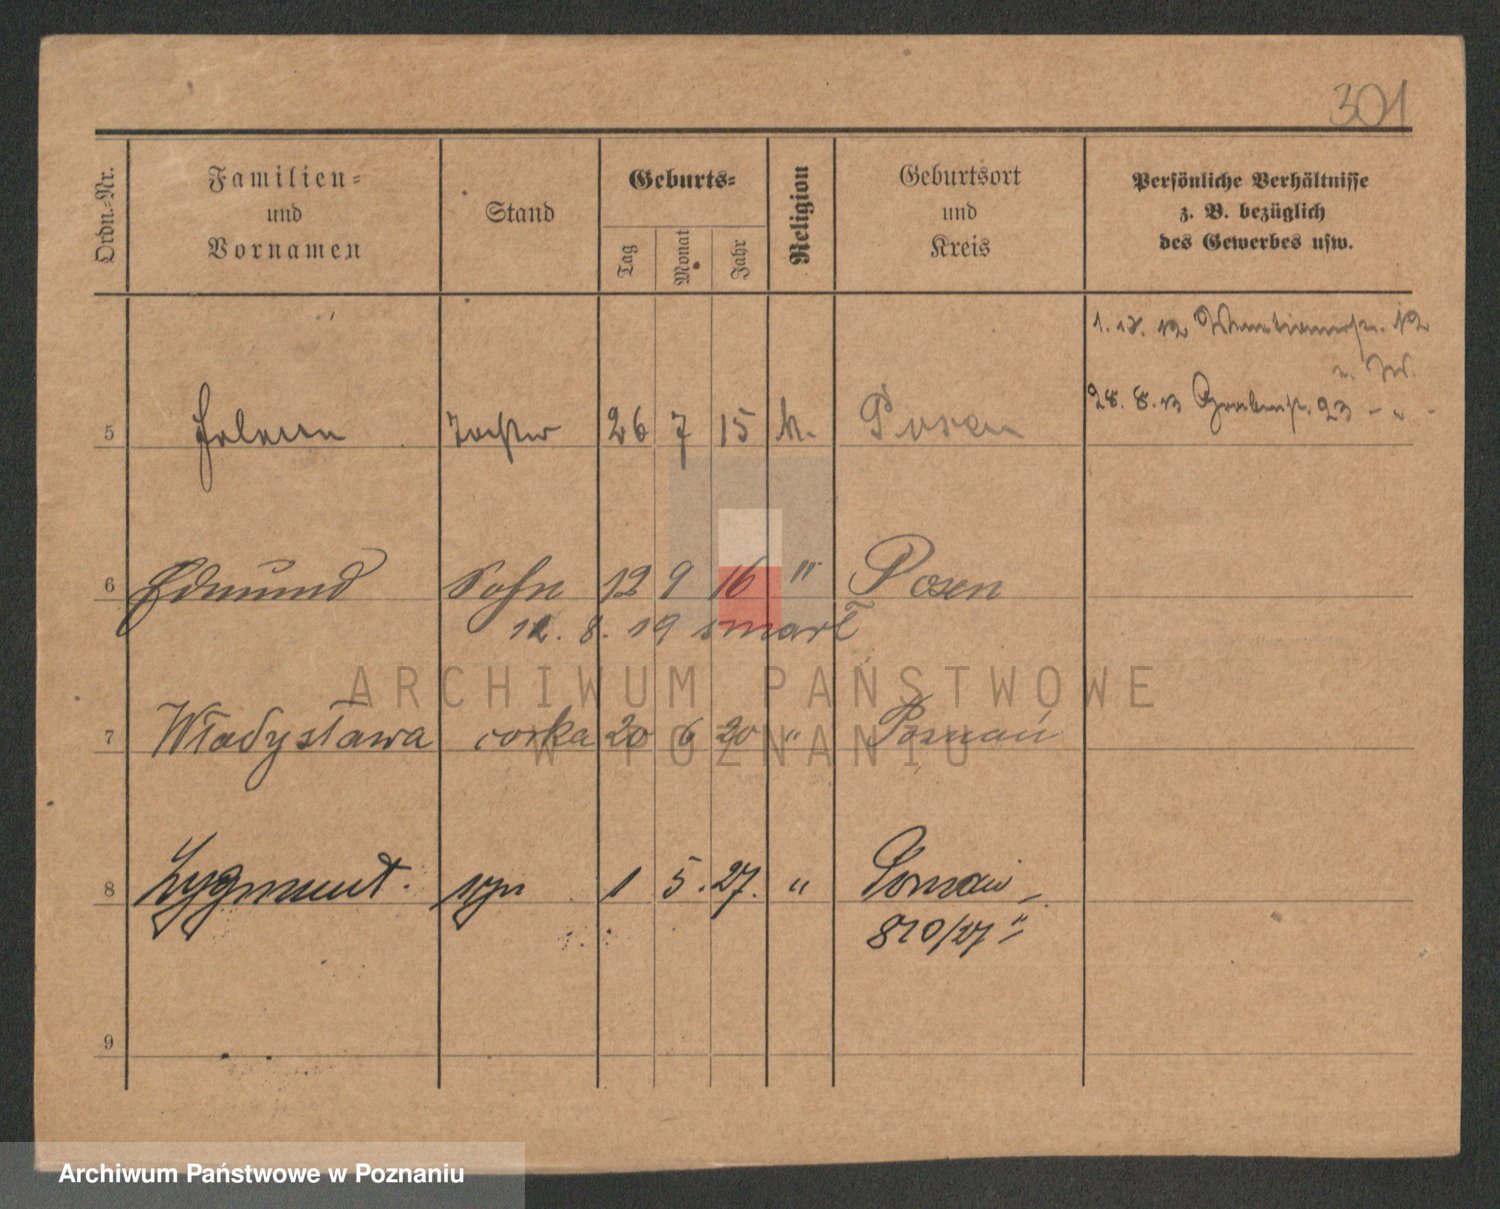 301
Ordn.-Nr.
Familien-
und
Vornamen
Stand
Geburts-
Tag
Monat
Jahr
Religion
Geburtsort
und
Kreis
Persönliche Verhältnisse
z. B. bezüglich
des Gewerbes usw.
12
28. 8. 13 Grabenstr. 23 - " -
5 Helene Tochter 26 7 15 k. Posen
6 Edmund Sohn 12 9 16 " Posen
12. 8. 19 zmarł
7 Władysława corka 20 6 20 " Poznań
8 Zygmunt. syn 1 5. 27. " Poznań
820/27
9
ARCHIWUM PAŃSTWOWE
W POZNANIU
Archiwum Państwowe w Poznaniu